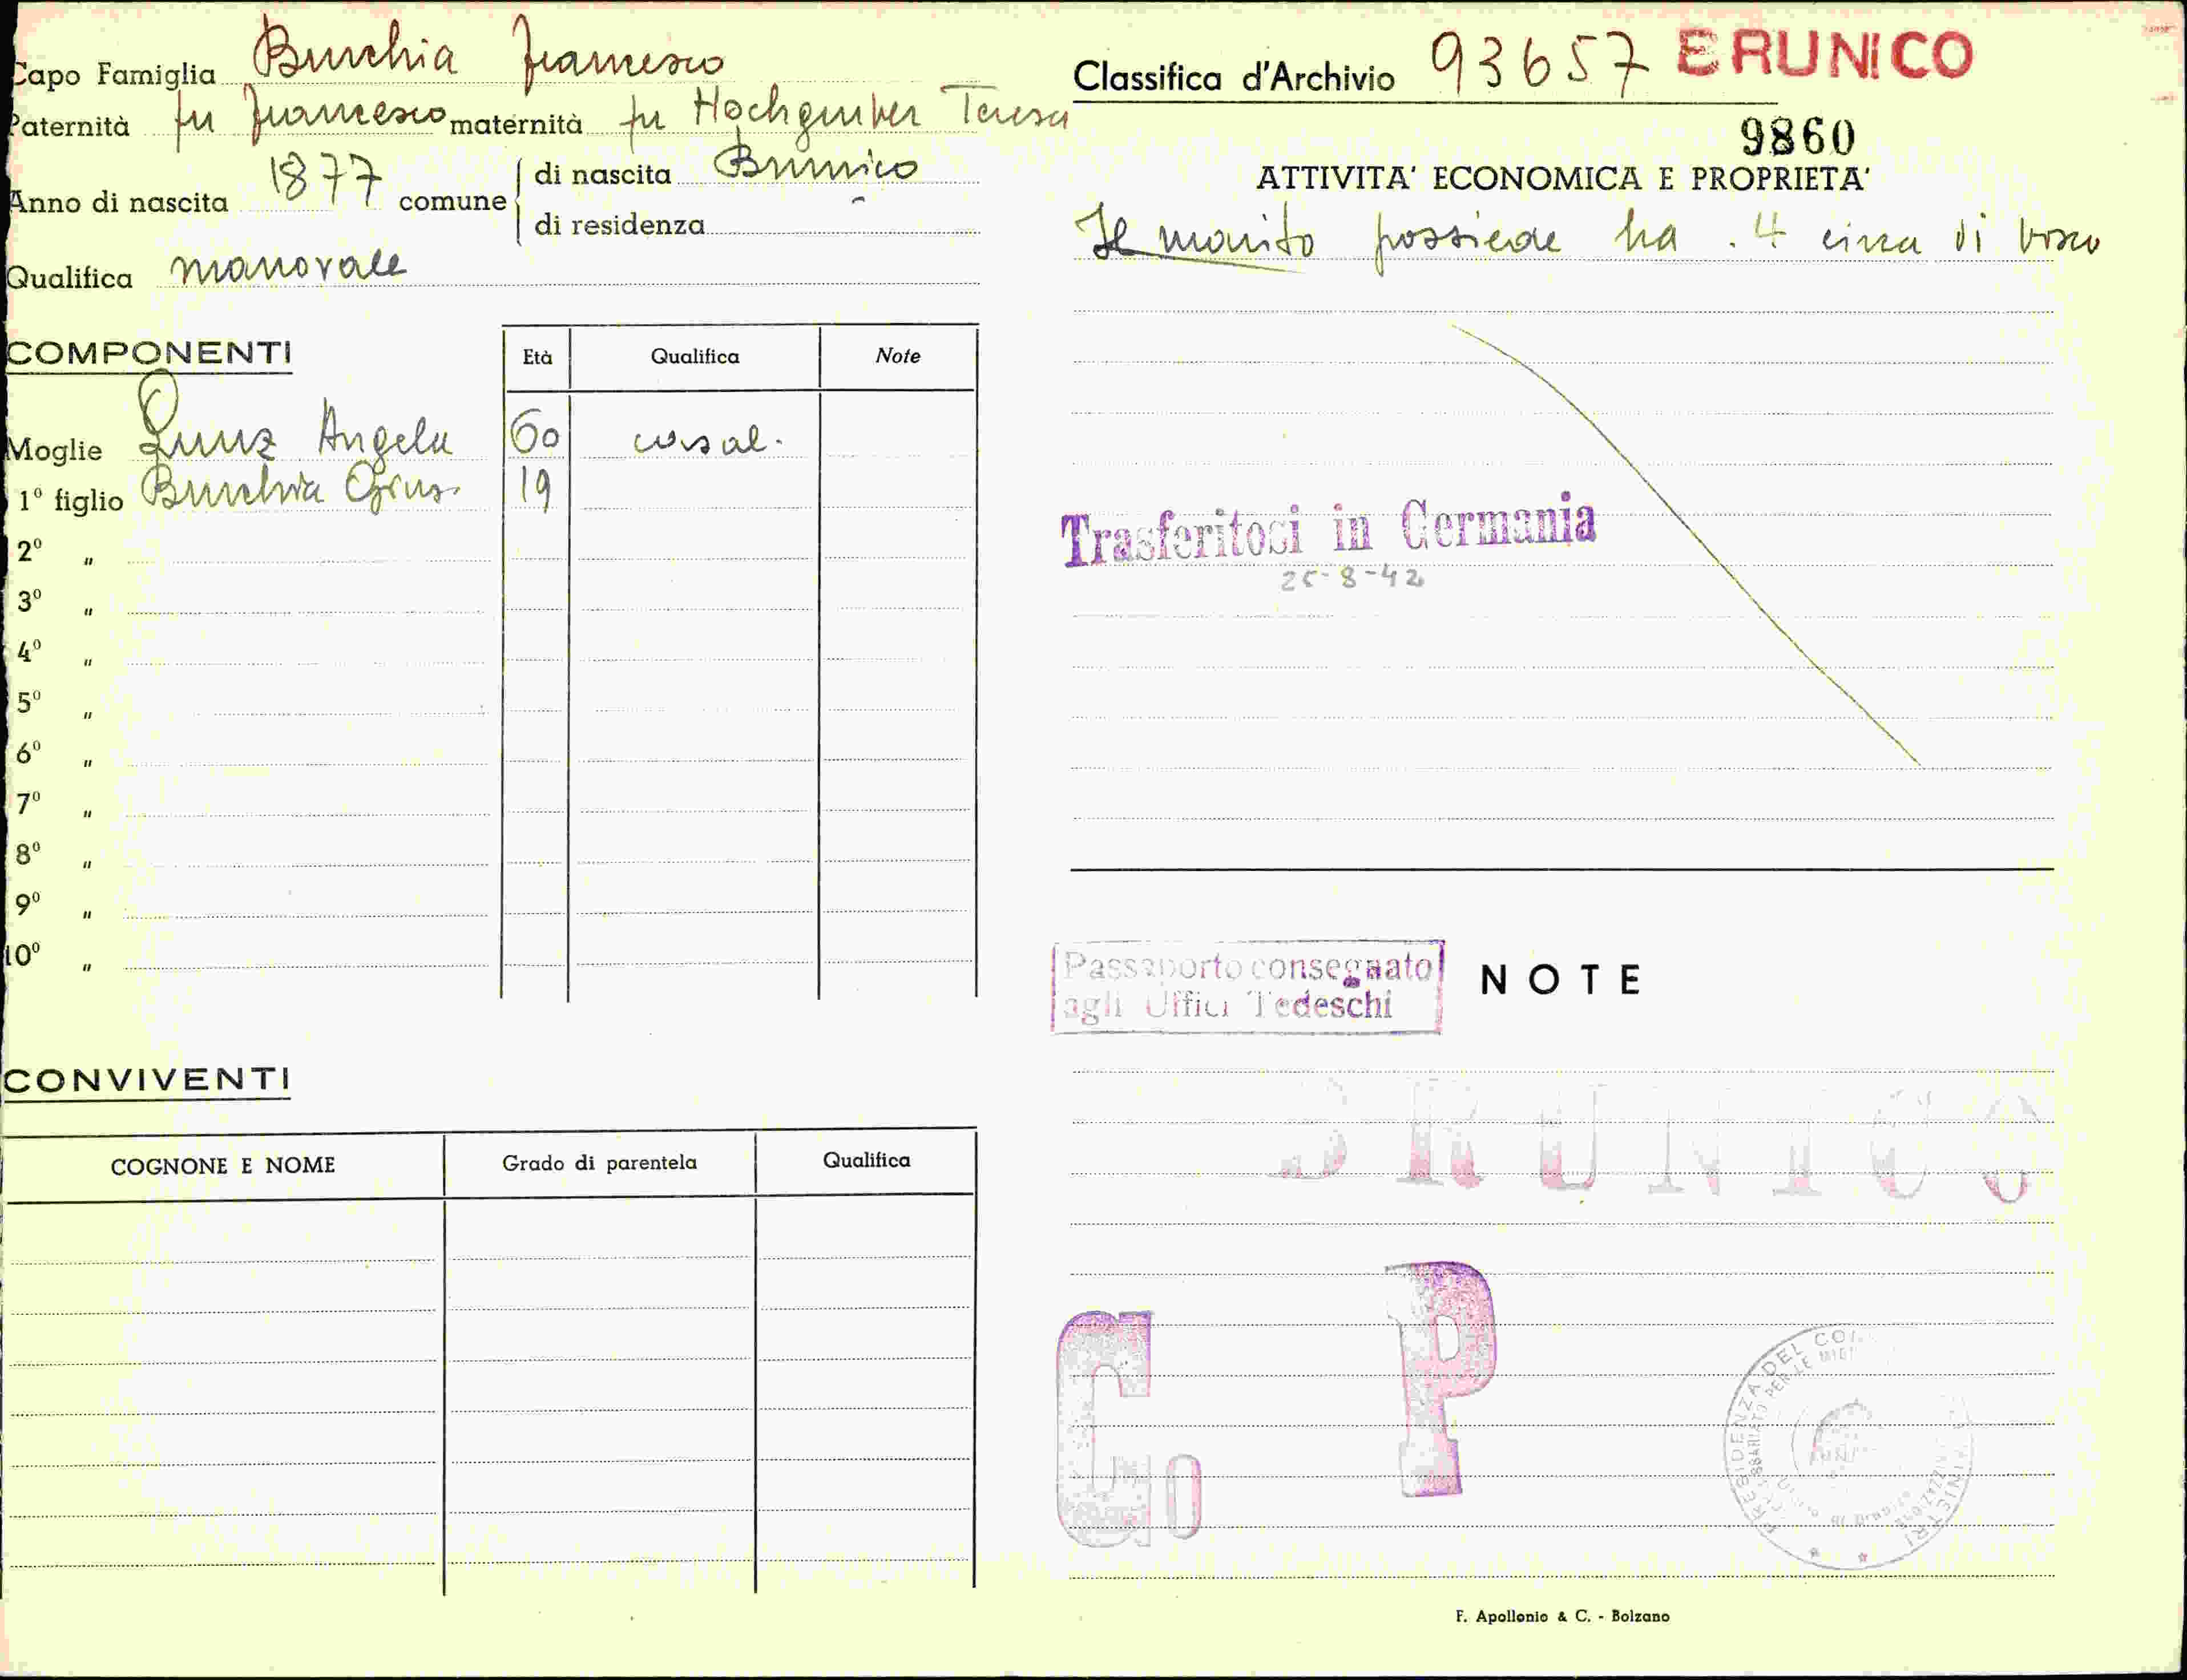 Capo Famiglia Burchia Francesco
Paternità fu Francesco maternità fu Hochgruber Teresa
Anno di nascita 1877 comune di nascita Brunico
di residenza "
Qualifica manovale
COMPONENTI Età Qualifica Note
Moglie Lunz Angela 60 casal.
1º figlio Burchia Gius. 19
2º "
3º "
4º "
5º "
6º "
7º "
8º "
9º "
10º "
CONVIVENTI
COGNONE E NOME Grado di parentela Qualifica
Classifica d'Archivio 93657 BRUNICO
9860
ATTIVITA' ECONOMICA E PROPRIETA'
Il marito possiede ha. 4 circa di bosco
Trasferitosi in Germania
25-8-42
Passaporto consegnato
agli Uffici Tedeschi
NOTE
BRUNICO
C. P
PRESIDENZA DEL MINISTRI
PER LE
F. Apollonio & C. - Bolzano